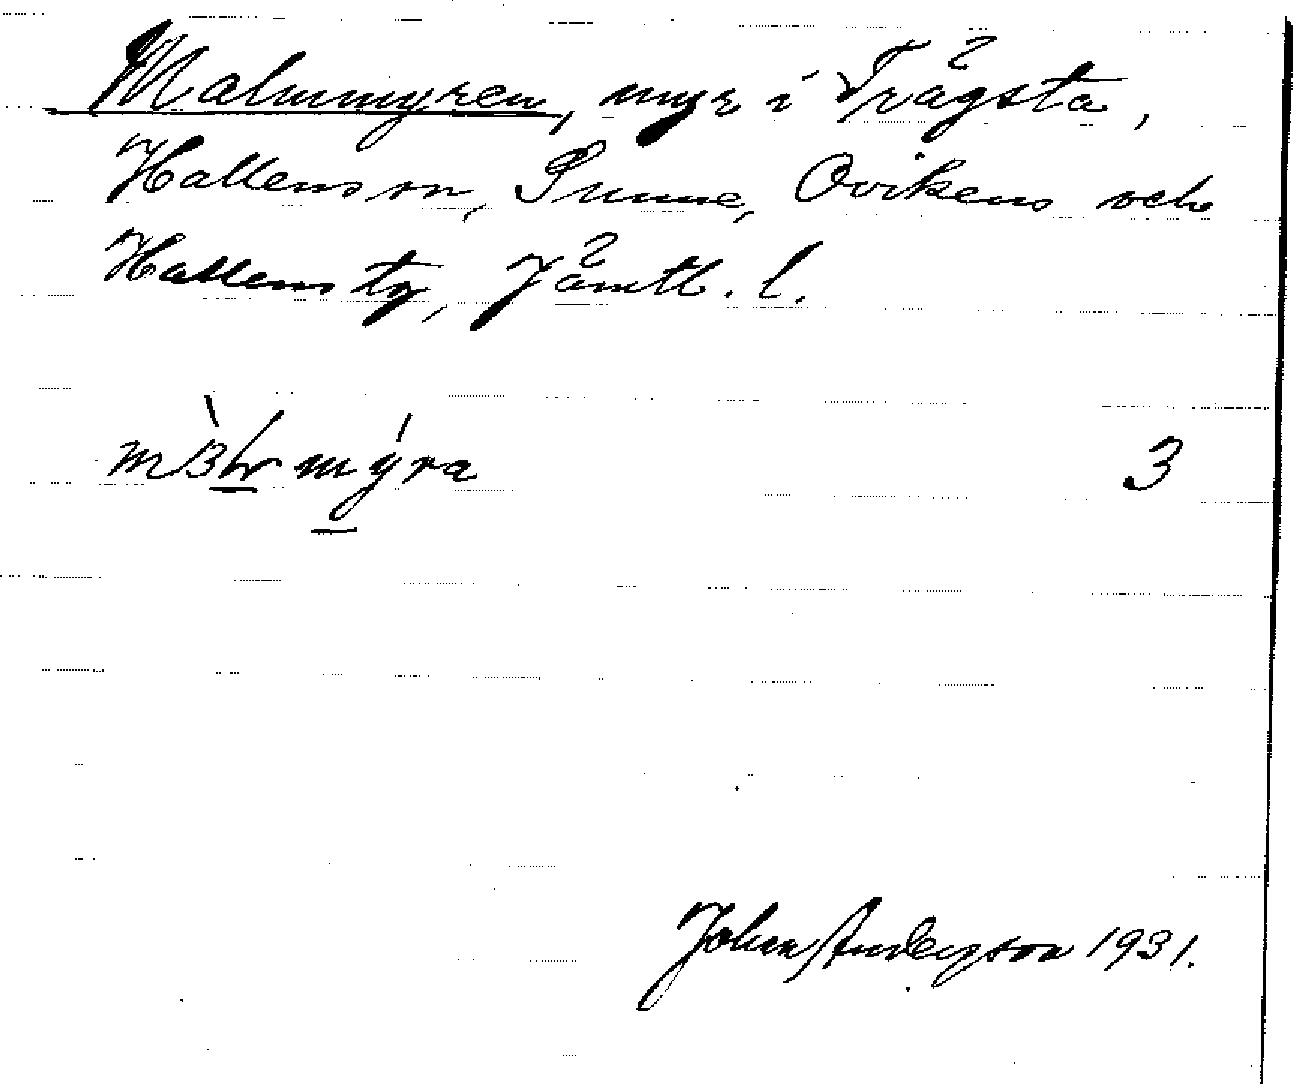 Malmmyren, myr i Trägsta,
Hallens sn, Sunne, Ovikens och
Hallens tg, Jämtl. l.
3
John Anderson 1931.